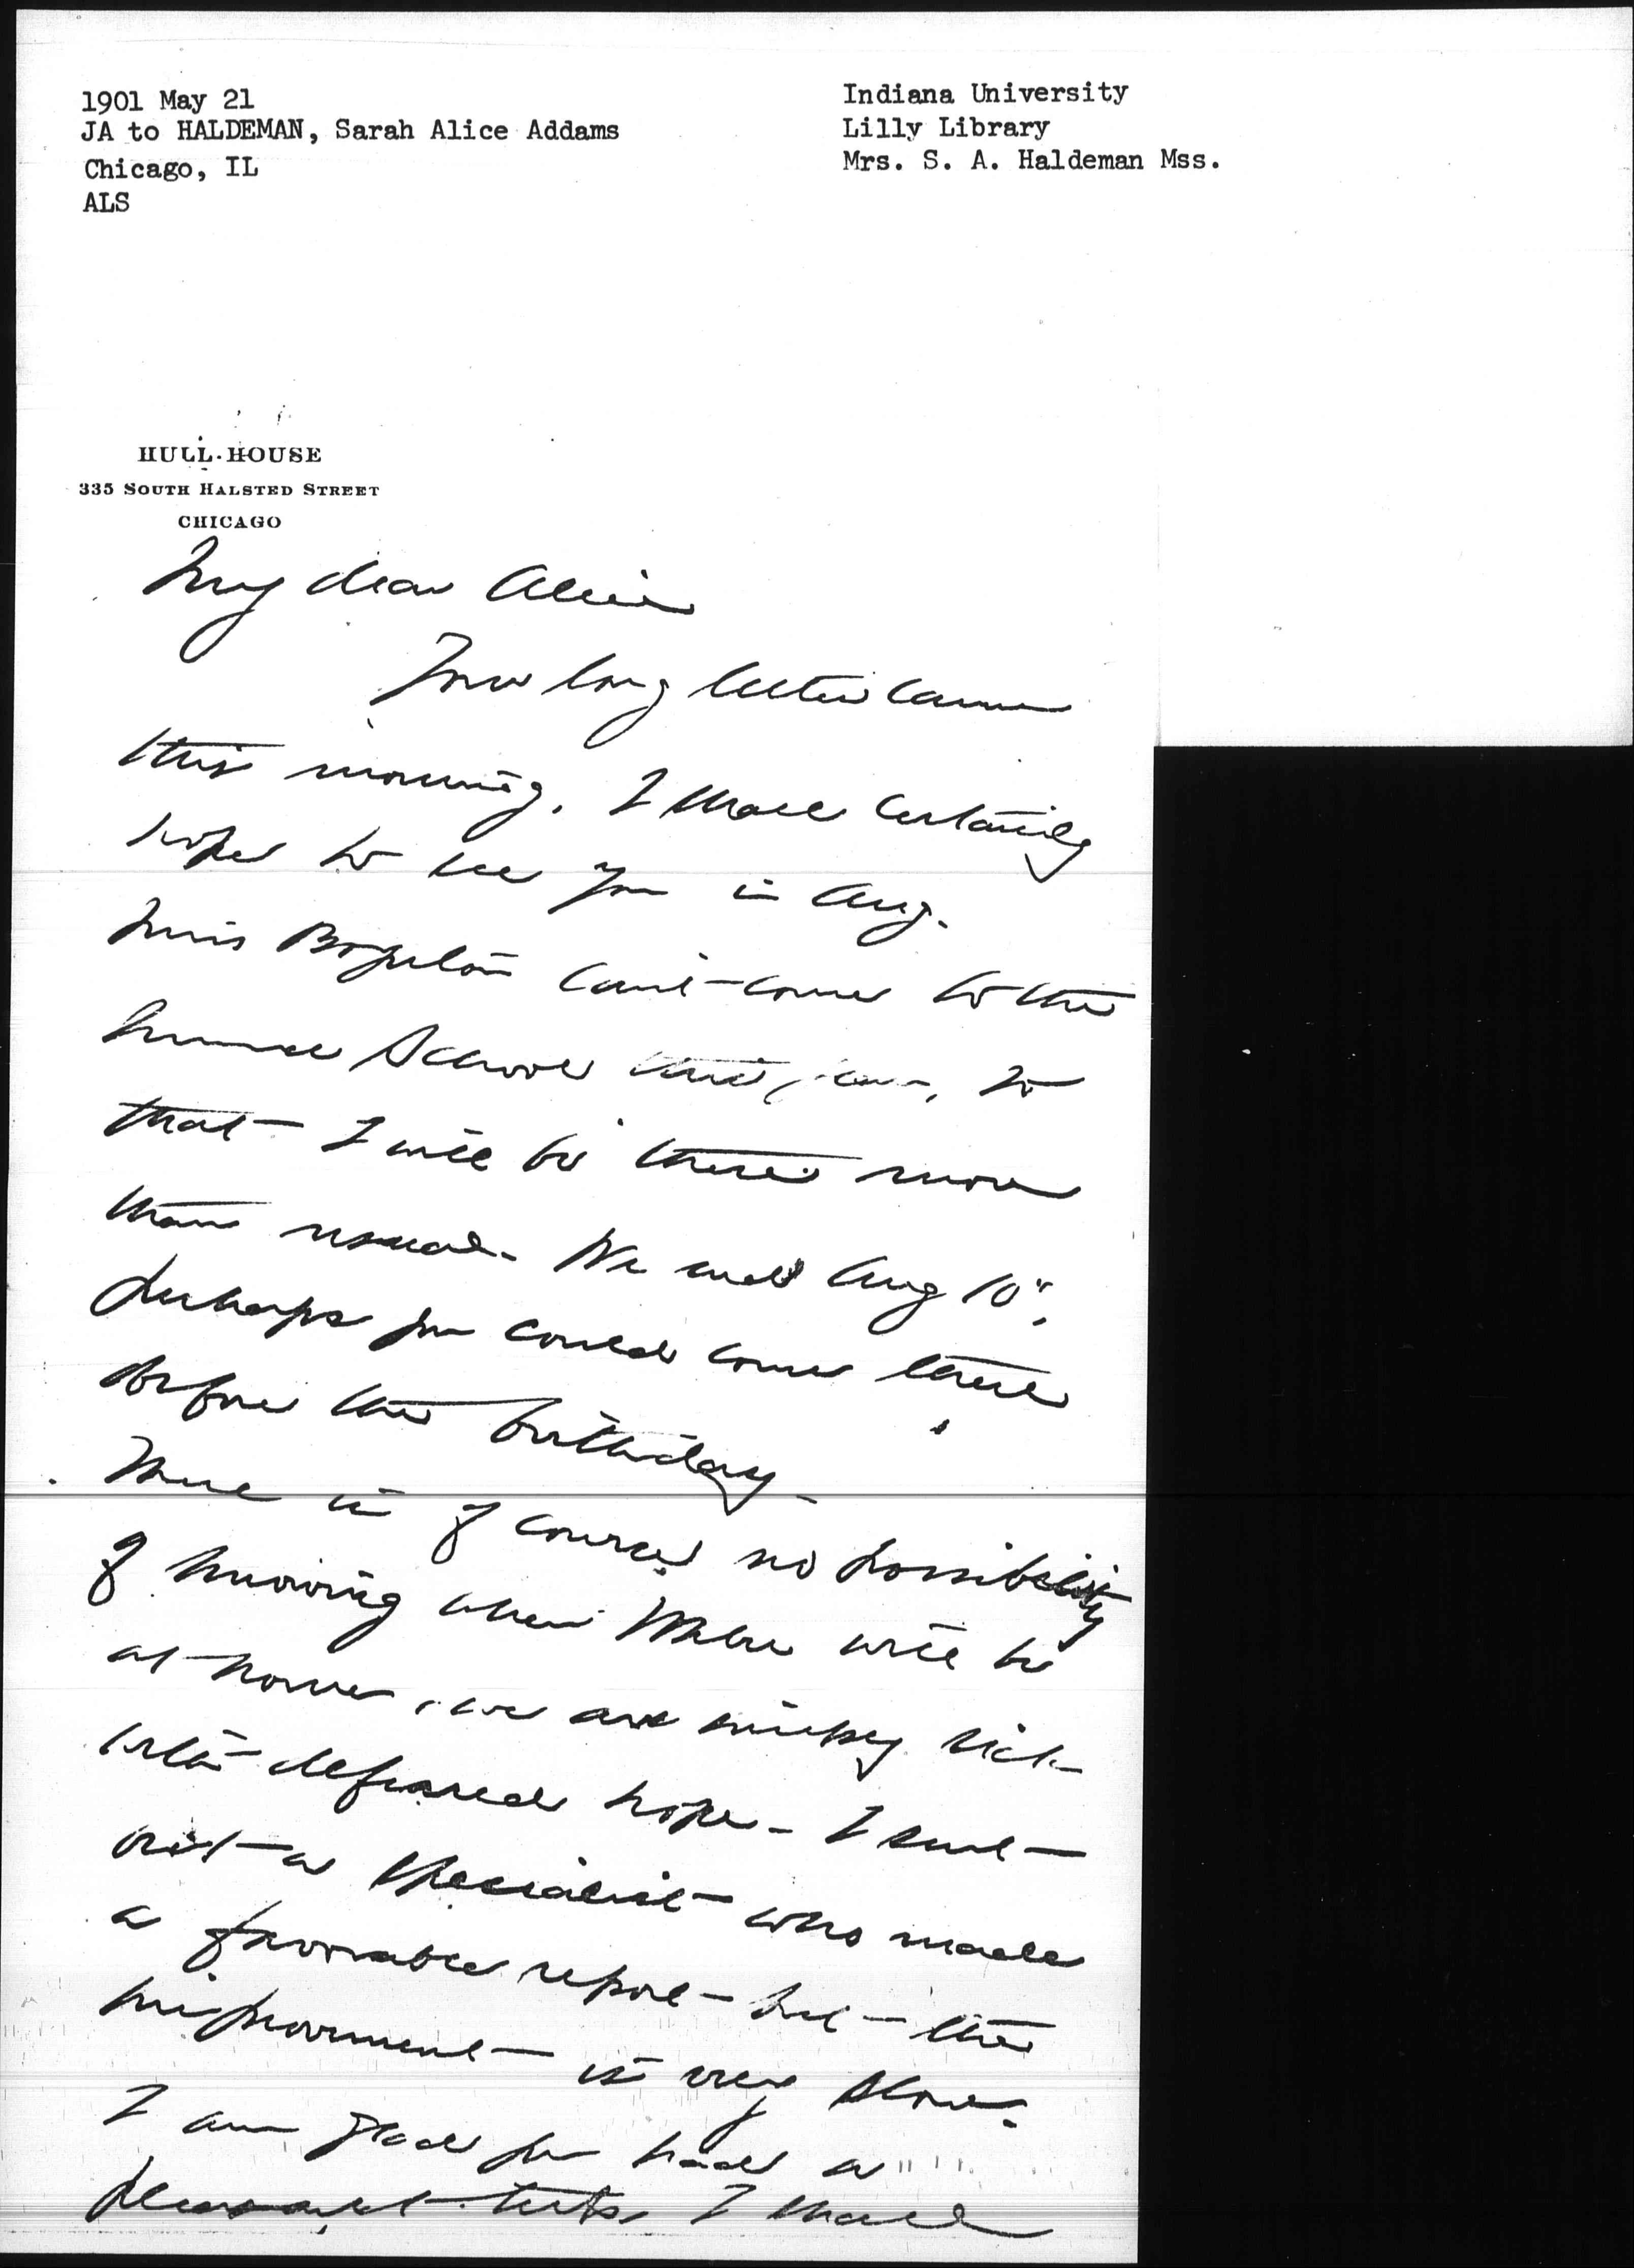 1901 May 21
JA to HALDEMAN, Sarah Alice Addams
Chicago, IL
ALS
Indiana University
Lilly Library
Mrs. S. A. Haldeman Mss.
HULL-HOUSE
335 SOUTH HALSTED STREET
CHICAGO
My dear Alice
Your long letter came
this morning. I shall certainly
hope to see you in Aug.
Miss can't come to the
Summer School this year, so
that I will be there more
than usual. We end Aug 10",
perhaps you could come there
before the birthday.
There is of course no possibility
of knowing when will be
at home, we are simply sick
with deferred hope. I sent
out a specialist who made
a favorable report but the
improvement is very slow.
I am glad you had a
pleasant I shall